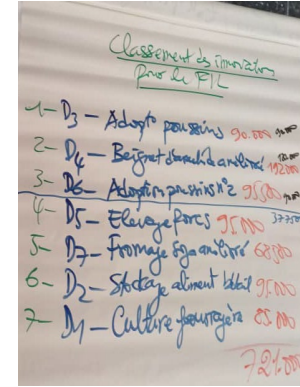 Classement des innovations
Pour le FIL
1- D3 - Adopto poussins 90.000
2- D4 - Beignet amélioré 192000
3- D6 - Adoption poussins n°2 95500
4- D5 - Elevage porcs 95000 37750
5- D7 - Fromage soja amélioré 68500
6- D2 - Stockage aliment bétail 95.000
7- D1 - Culture fourragère 85.000